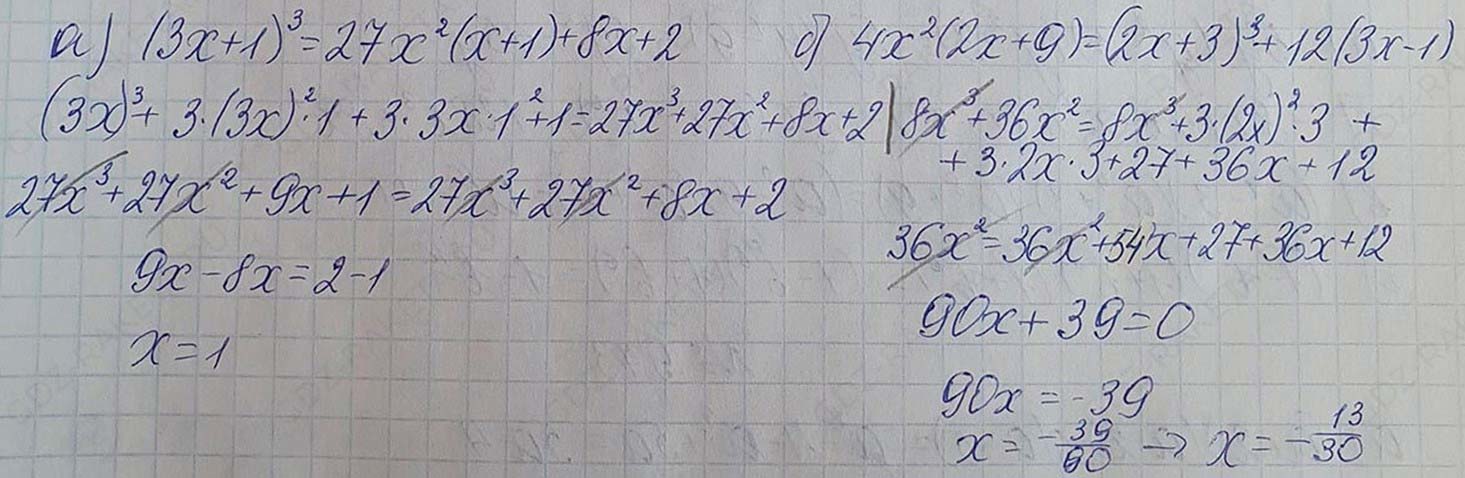 а) (3x+1)³=27x²(x+1)+8x+2
(3x)³+3·(3x)²·1+3·3x·1²+1=27x³+27x²+8x+2
27x³+27x²+9x+1=27x³+27x²+8x+2
9x-8x=2-1
x=1
б) 4x²(2x+9)=(2x+3)³+12(3x-1)
8x³+36x²=8x³+3·(2x)²·3+
+3·2x·3+27+36x+12
36x²=36x²+54x+27+36x+12
90x+39=0
90x=-39
x=-39/90 → x=-13/30